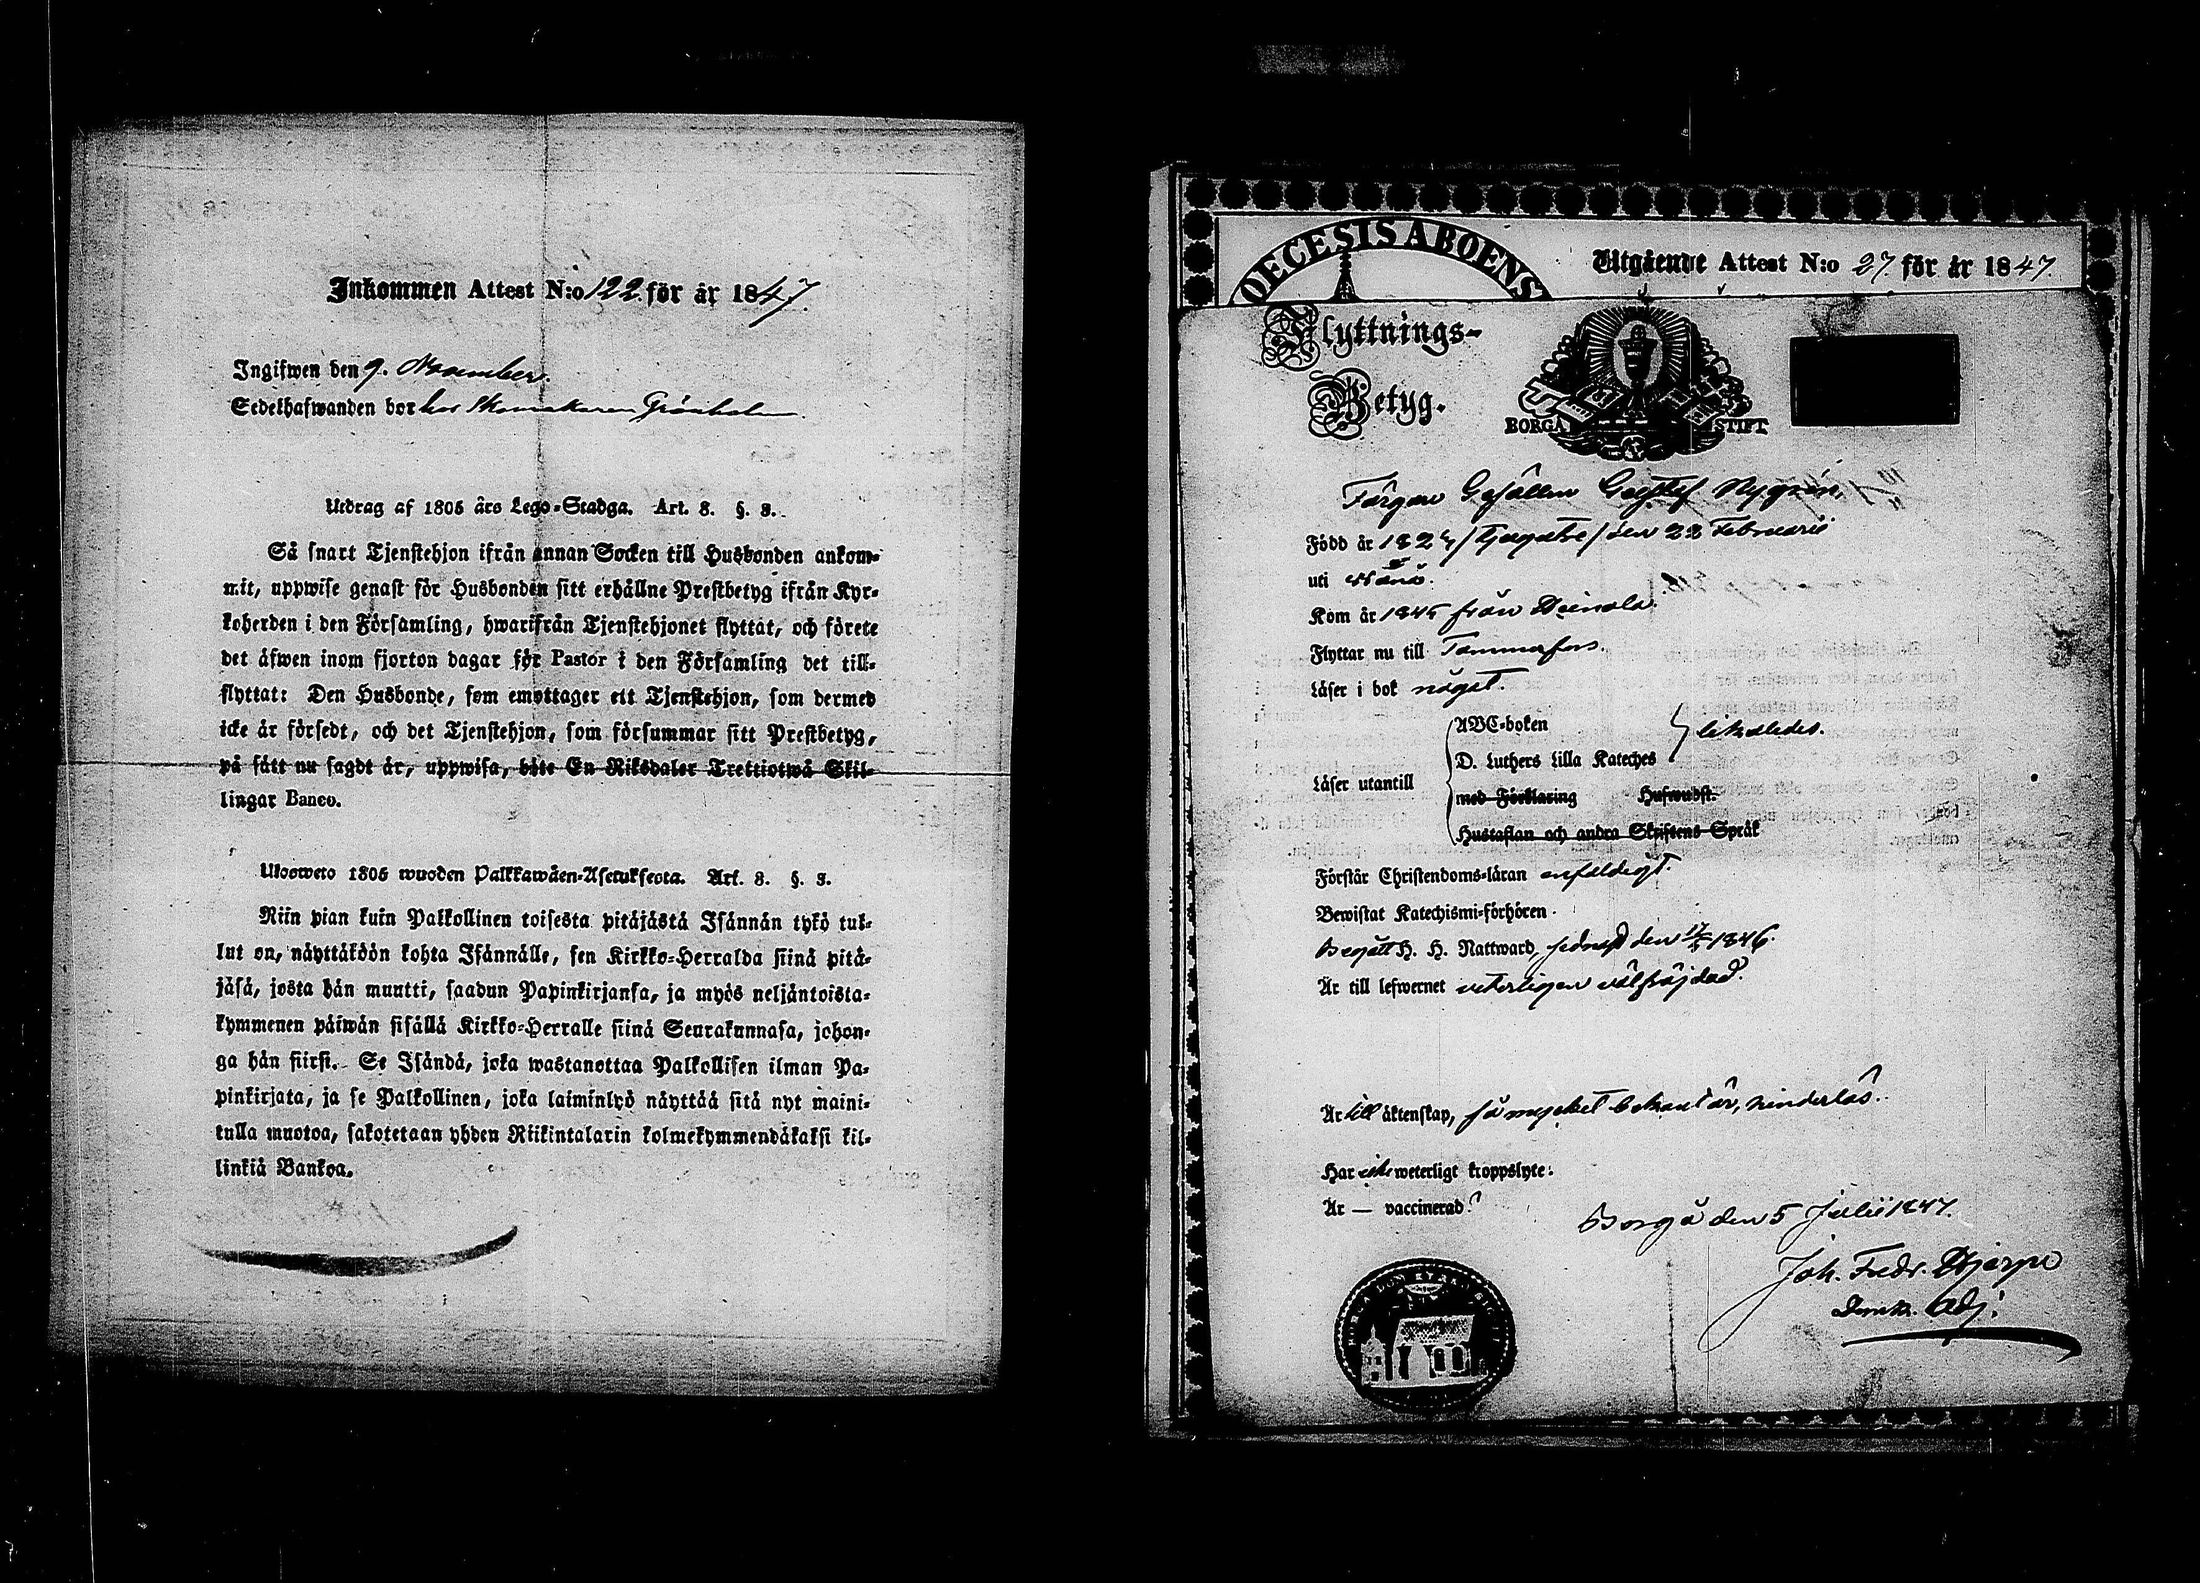 Inkommen Attest N:o 122 för år 1847.
Ingifwen den 9. November.
Sedelhafwanden bor hos Skomakaren Grönholm.
Utdrag af 1805 års Lego-Stadga. Art. 8. §. 8.
Så snart Tjenstehjon ifrån annan Socken till Husbonden ankom-
mit, uppwise genast för Husbonden sitt erhållne Prestbetyg ifrån Kyr-
koherden i den Församling, hwarifrån Tjenstehjonet flyttat, och förete
det äfwen inom fjorton dagar för Pastor i den Församling det till-
flyttat: Den Husbonde, som emottager ett Tjenstehjon, som dermed
icke är försedt, och det Tjenstehjon, som försummar sitt Prestbetyg,
på sätt nu sagdt är, uppwisa, böte En Riksdaler Trettiotwå Skil-
lingar Banco.
Ulosweto 1805 wuoden Palkkawäen-Asetuksesta. Art. 8. §. 8.
Niin pian kuin Palkollinen toisesta pitäjästä Isännän tykö tul-
lut on, näyttäköön kohta Isännälle, sen Kirkko-Herralda siinä pitä-
jäsä, josta hän muutti, saadun Papinkirjansa, ja myös neljäntoista-
kymmenen päiwän sisällä Kirkko-Herralle siinä Seurakunnasa, johon-
ga hän siirsi. Se Isändä, joka wastanottaa Palkollisen ilman Pa-
pinkirjata, ja se Palkollinen, joka laiminlyö näyttää sitä nyt maini-
tulla muotoa, sakotetaan yhden Riikintalarin kolmekymmendäkaksi kil-
linkiä Bankoa.
OECESIS ABOENS
Utgående Attest N:o 27 för år 1847.
Flyttnings-
Betyg.
BORGÅ STIFT
Färgare Gesällen Gustaf Nygrén,
Född år 182 /tjugutre/ den 22 Februarii
uti
Kom år 1845 från Heinola.
Flyttar nu till Tammerfors.
Läser i bok något.
ABC-boken
D. Luthers Lilla Kateches } likaledes.
Läser utantill
med Förklaring Hufwudst.
Hustaflan och andra Skriftens Språk
Förstår Christendoms-läran enfaldigt.
Bewistat Katechismi-förhören
Begått H. H. Nattward, sednast den 17/5 1846.
Är till lefwernet veterligen välfräjdad.
Är till äktenskap, så mycket bekant är, hinderlös.
Har icke weterligt kroppslyte.
Är — vaccinerad?
Borgå den 5 Julii 1847.
Joh. Fredr. Hjerpe
Domk. Adj.